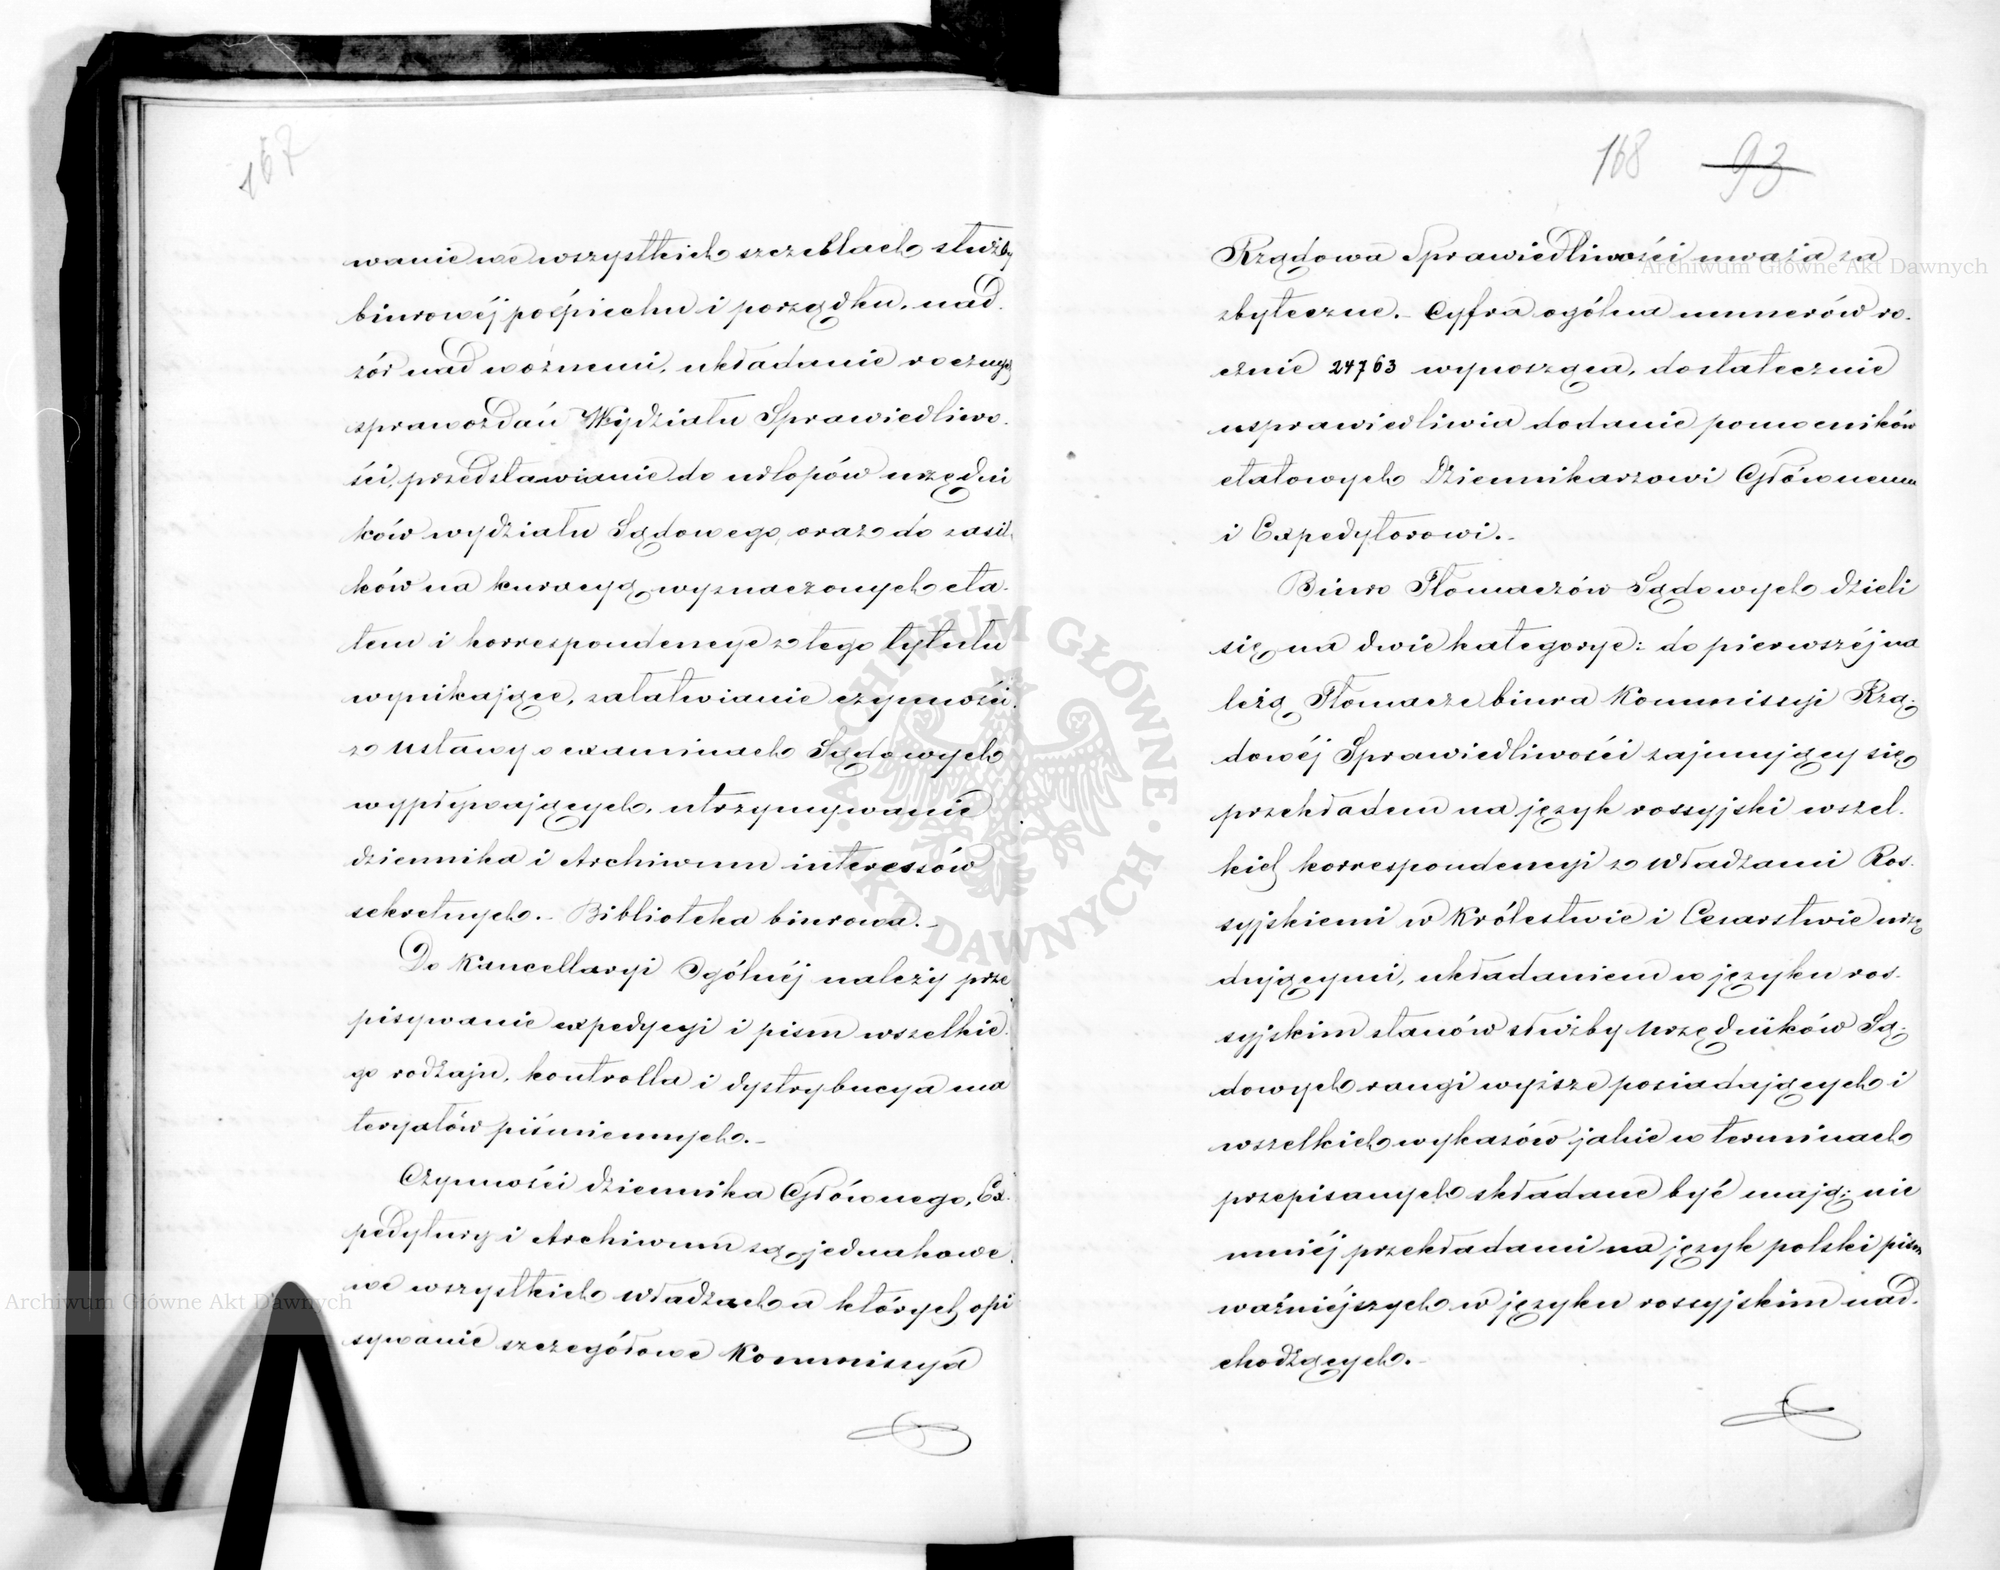 167
wanie we wszystkich szczeblach służby
biurowéj pośpiechu i porządku, nad-
zór nad woźnemi, układanie rocznych
sprawozdań Wydziału Sprawiedliwo-
ści, przedstawianie do urlopów urzędni
ków wydziału Sądowego, oraz do zasił-
ków na kuracyą wyznaczonych eta-
tem i korrespondencye z tego tytułu
wynikające, załatwianie czynności
z Ustawy o examinach Sądowych
wypływających, utrzymywanie
dziennika i Archiwum interessów
sekretnych.- Biblioteka biurowa.-
Do Kancellaryi Ogólnéj należy prze
pisywanie expedycyi i pism wszelkie-
go rodzaju, kontrolla i dystrybucya ma
teryałów piśmiennych.-
Czynności dziennika Głównego, Ex-
pedytury i Archiwum są jednakowe
we wszystkich Władzach a których opi
sywanie szczegółowe Kommissya
168 93
Rządowa Sprawiedliwości uważa za
zbyteczne.- Cyfra ogólna numerów ro-
cznie 24763 wynosząca, dostatecznie
usprawiedliwia dodanie pomocników
etatowych Dziennikarzowi Głównemu
i Expedytorowi.-
Biuro Tłomaczów Sądowych dzieli
się na dwie kategorye: do pierwszéj na
leżą Tłomacze biura Kommissyi Rzą-
dowéj Sprawiedliwości zajmujący się
przekładem na język rossyjski wszel-
kich korrespondencyi z Władzami Ros-
syjskiemi w Królestwie i Cesarstwie urzę
dującymi, układaniem w języku ros-
syjskim stanów służby Urzędników Są-
dowych rangi wyższe posiadających i
wszelkich wykazów jakie w terminach
przepisanych składane być mają; nie
mniéj przekładami na język polski pism
ważniéjszych w języku rossyjskim nad-
chodzących.-
Archiwum Główne Akt Dawnych
Archiwum Główne Akt Dawnych
ARCHIWUM GŁÓWNE AKT DAWNYCH